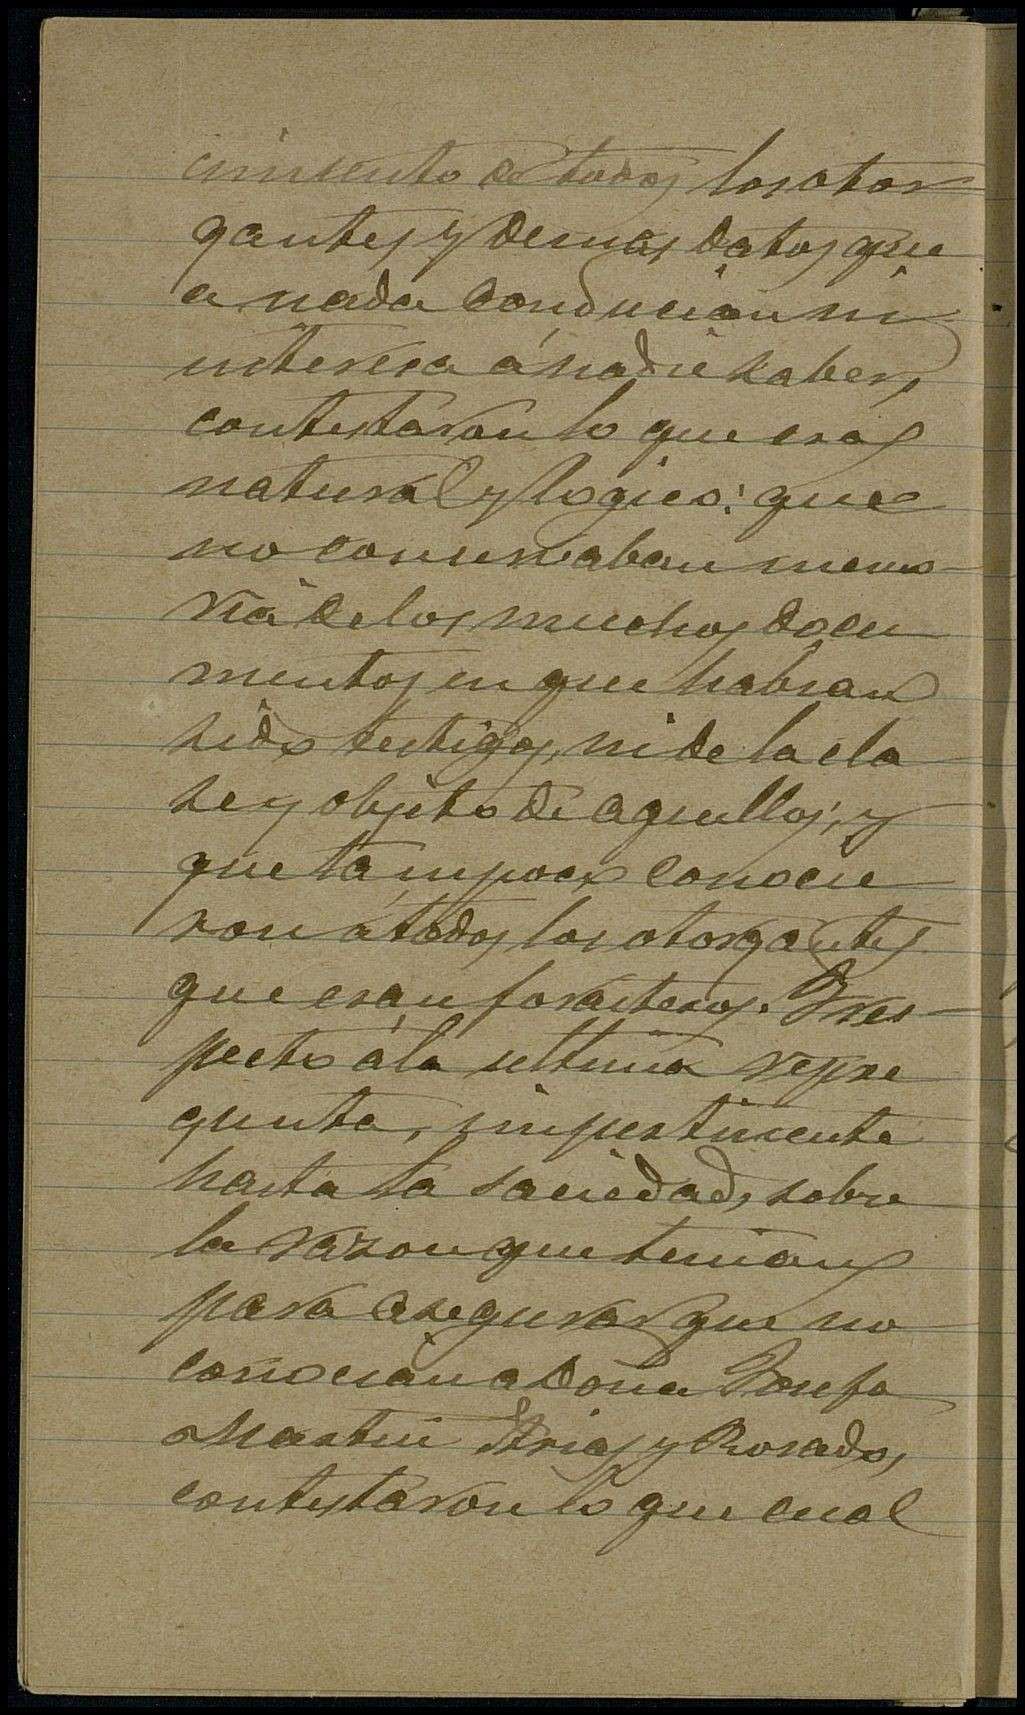 cimiento á todos los otor
gantes y demas datos que
a nada conducian ni
interesa á nadie saber,
contestáron lo que era
natural y logico: que
no conservaban memo
ria de los muchos docu
mentos en que habian
sido testigos, ni de la cla
se y objeto de aquellos; y
que tampoco conocie
ron á todos los otorgantes
que eran forasteros. Y res
pecto á la ultima repre
gunta, impertinente
hasta la saciedad, sobre
la razon que tenian
para asegurar que no
conocian a Doña Josefa
Martin Arias y Rosado,
contestáron lo que cual